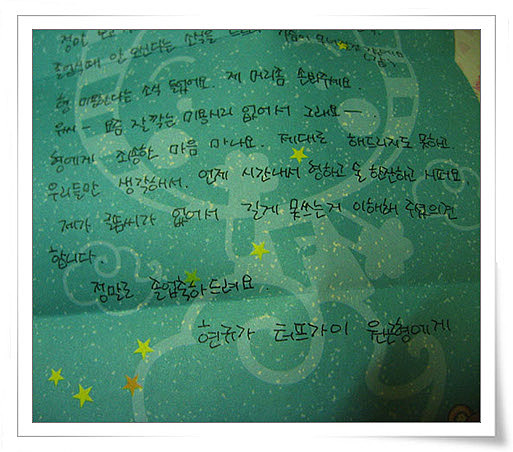 졸업식때 안 오신다는 소식을
형 미용한다는 소식 들었어요. 제 머리좀 손봐주세요.
요즘 잘 깍는 미용사가 없어서 그래요 ㅡ.
형에게 죄송한 마음 마나요. 제대로 해드리지도 못하고.
우리들만 생각해서. 언제 시간내서 형하고 술 한잔하고 시퍼요.
제가 글씨가 없어서 길게 못쓰는거 이해해 주셨으면
합니다.
정말로 졸업축하드려요.
현규가 터프가이 원형에게